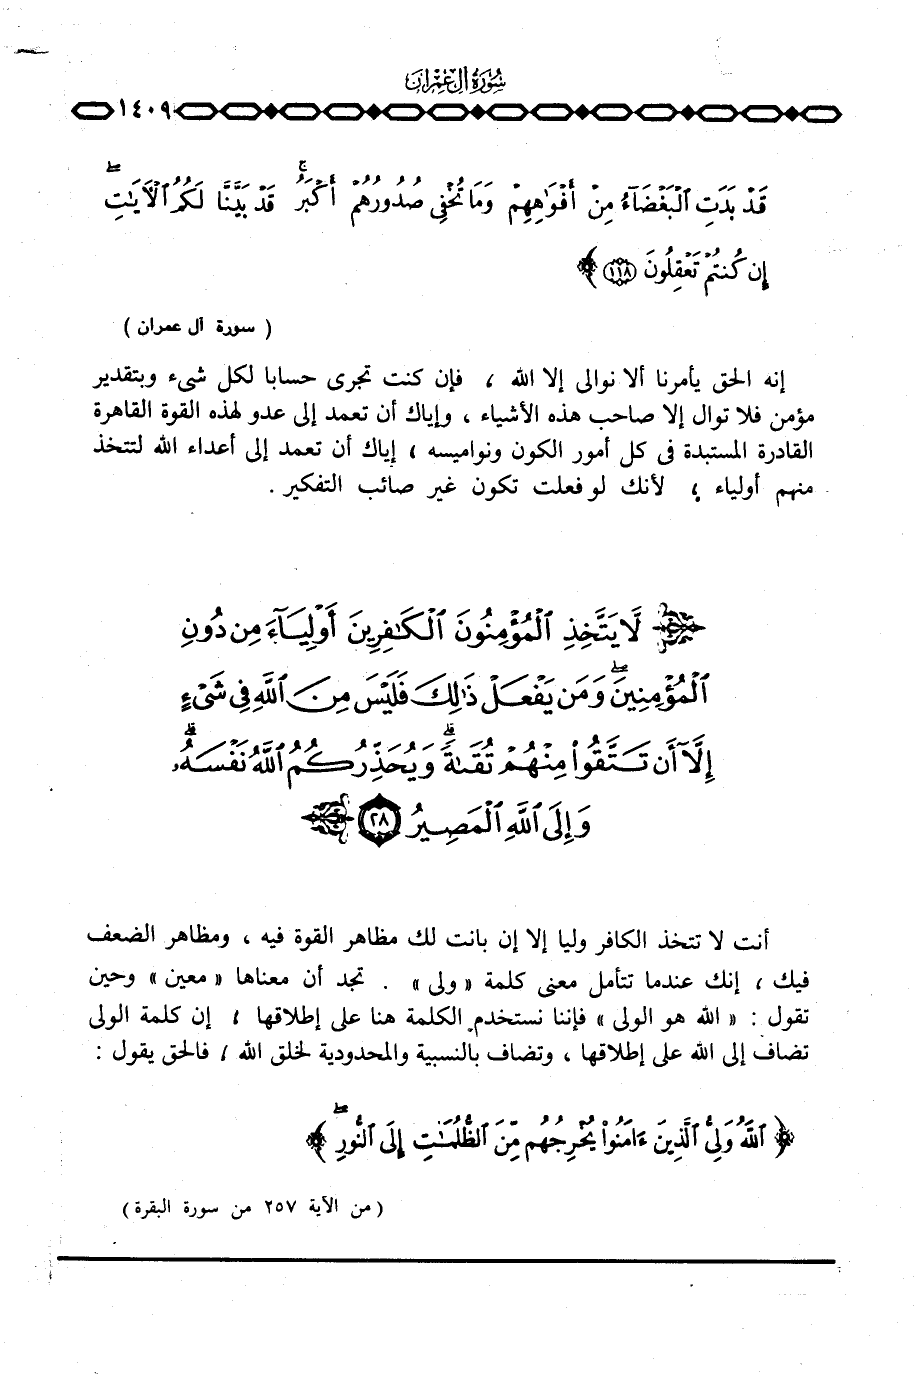 سورة آل عمران
١٤٠٩
قَدْ بَدَتِ ٱلْبَغْضَآءُ مِنْ أَفْوَٰهِهِمْ وَمَا تُخْفِى صُدُورُهُمْ أَكْبَرُ ۚ قَدْ بَيَّنَّا لَكُمُ ٱلْأَيَٰتِ ۖ
إِن كُنتُمْ تَعْقِلُونَ ١١٨ ﴾
( سورة آل عمران )
إنه الحق يأمرنا ألا نوالى إلا الله ، فإن كنت تجرى حسابا لكل شىء وبتقدير
مؤمن فلا توال إلا صاحب هذه الأشياء ، وإياك أن تعمد إلى عدو لهذه القوة القاهرة
القادرة المستبدة فى كل أمور الكون ونواميسه ، إياك أن تعمد إلى أعداء الله لتتخذ
منهم أولياء ، لأنك لو فعلت تكون غير صائب التفكير .
﴿ لَّا يَتَّخِذِ ٱلْمُؤْمِنُونَ ٱلْكَٰفِرِينَ أَوْلِيَآءَ مِن دُونِ
ٱلْمُؤْمِنِينَ ۖ وَمَن يَفْعَلْ ذَٰلِكَ فَلَيْسَ مِنَ ٱللَّهِ فِى شَىْءٍ
إِلَّآ أَن تَتَّقُوا۟ مِنْهُمْ تُقَىٰةً ۗ وَيُحَذِّرُكُمُ ٱللَّهُ نَفْسَهُۥ ۗ
وَإِلَى ٱللَّهِ ٱلْمَصِيرُ ٢٨ ﴾
أنت لا تتخذ الكافر وليا إلا إن بانت لك مظاهر القوة فيه ، ومظاهر الضعف
فيك ، إنك عندما تتأمل معنى كلمة « ولى » . تجد أن معناها « معين » وحين
تقول : « الله هو الولى » فإننا نستخدم الكلمة هنا على إطلاقها ، إن كلمة الولى
تضاف إلى الله على إطلاقها ، وتضاف بالنسبية والمحدودية لخلق الله ، فالحق يقول :
﴿ ٱللَّهُ وَلِىُّ ٱلَّذِينَ ءَامَنُوا۟ يُخْرِجُهُم مِّنَ ٱلظُّلُمَٰتِ إِلَى ٱلنُّورِ ۖ ﴾
( من الآية ٢٥٧ من سورة البقرة )